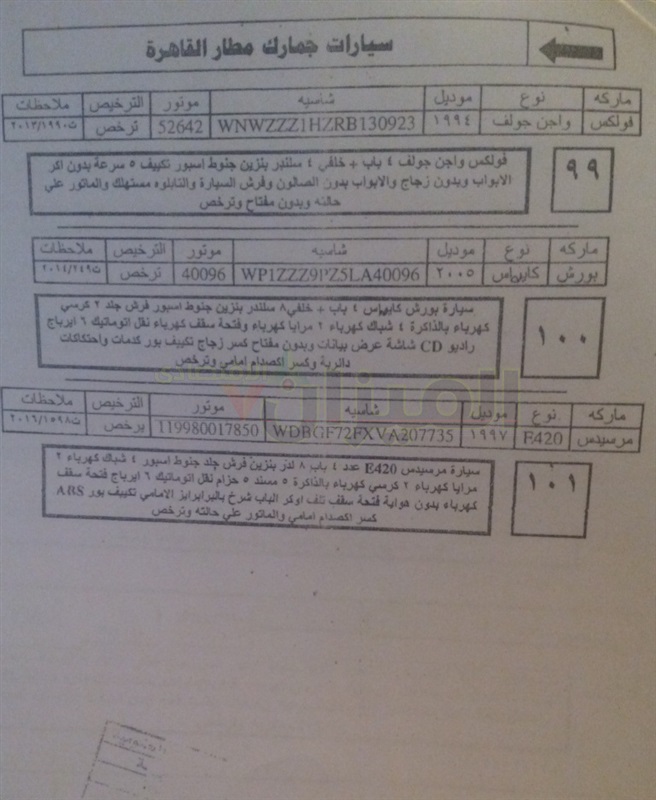 سيارات جمارك مطار القاهرة
ماركه نوع موديل شاسيه موتور الترخيص ملاحظات
فولكس واجن جولف ١٩٩٤ WNWZZZ1HZRB130923 52642 ترخص ت٢٠١٣/١٩٩٠
٩٩
فولكس واجن جولف ٤ باب + خلفي ٤ سلندر بنزين جنوط اسبور تكييف ٥ سرعة بدون اكر
الابواب وبدون زجاج والابواب بدون الصالون وفرش السيارة والتابلوه مستهلك والماتور علي
حالته وبدون مفتاح وترخص
ماركه نوع موديل شاسيه موتور الترخيص ملاحظات
بورش كايياس ٢٠٠٥ WP1ZZZ9PZ5LA40096 40096 ترخص ت٢٠١٤/٢٤٩
١٠٠
سيارة بورش كايياس ٤ باب + خلفي ٨ سلندر بنزين جنوط اسبور فرش جلد ٢ كرسي
كهرباء بالذاكرة ٤ شباك كهرباء ٢ مرايا كهرباء وفتحة سقف كهرباء نقل اتوماتيك ٦ ايرباج
راديو CD شاشة عرض بيانات وبدون مفتاح كسر زجاج تكييف بور كدمات واحتكاكات
دائرية وكسر اكصدام امامي وترخص
الميزان
ماركه نوع موديل شاسيه موتور الترخيص ملاحظات
مرسيدس E420 ١٩٩٧ WDBGF72FXVA207735 119980017850 برخص ت٢٠١٦/١٥٩٨
١٠١
سيارة مرسيدس E420 عدد ٤ باب ٨ لندر بنزين فرش جلد جنوط اسبور ٤ شباك كهرباء ٢
مرايا كهرباء ٢ كرسي كهرباء بالذاكرة ٥ مسند ٥ حزام نقل اتوماتيك ٦ ايرباج فتحة سقف
كهرباء بدون هواية فتحة سقف تلف اوكر الباب شرخ بالبرابرايز الامامي تكييف بور ABS
كسر اكصدام امامي والماتور علي حالته وترخص